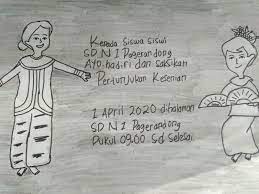 Kepada Siswa siswi
SD N 1 Pagerandong
Ayo hadiri dan saksikan
Pertunjukan Kesenian
1 April 2020 dihalaman
SD N 1 Pagerandong
Pukul 09.00 Sd Selesai